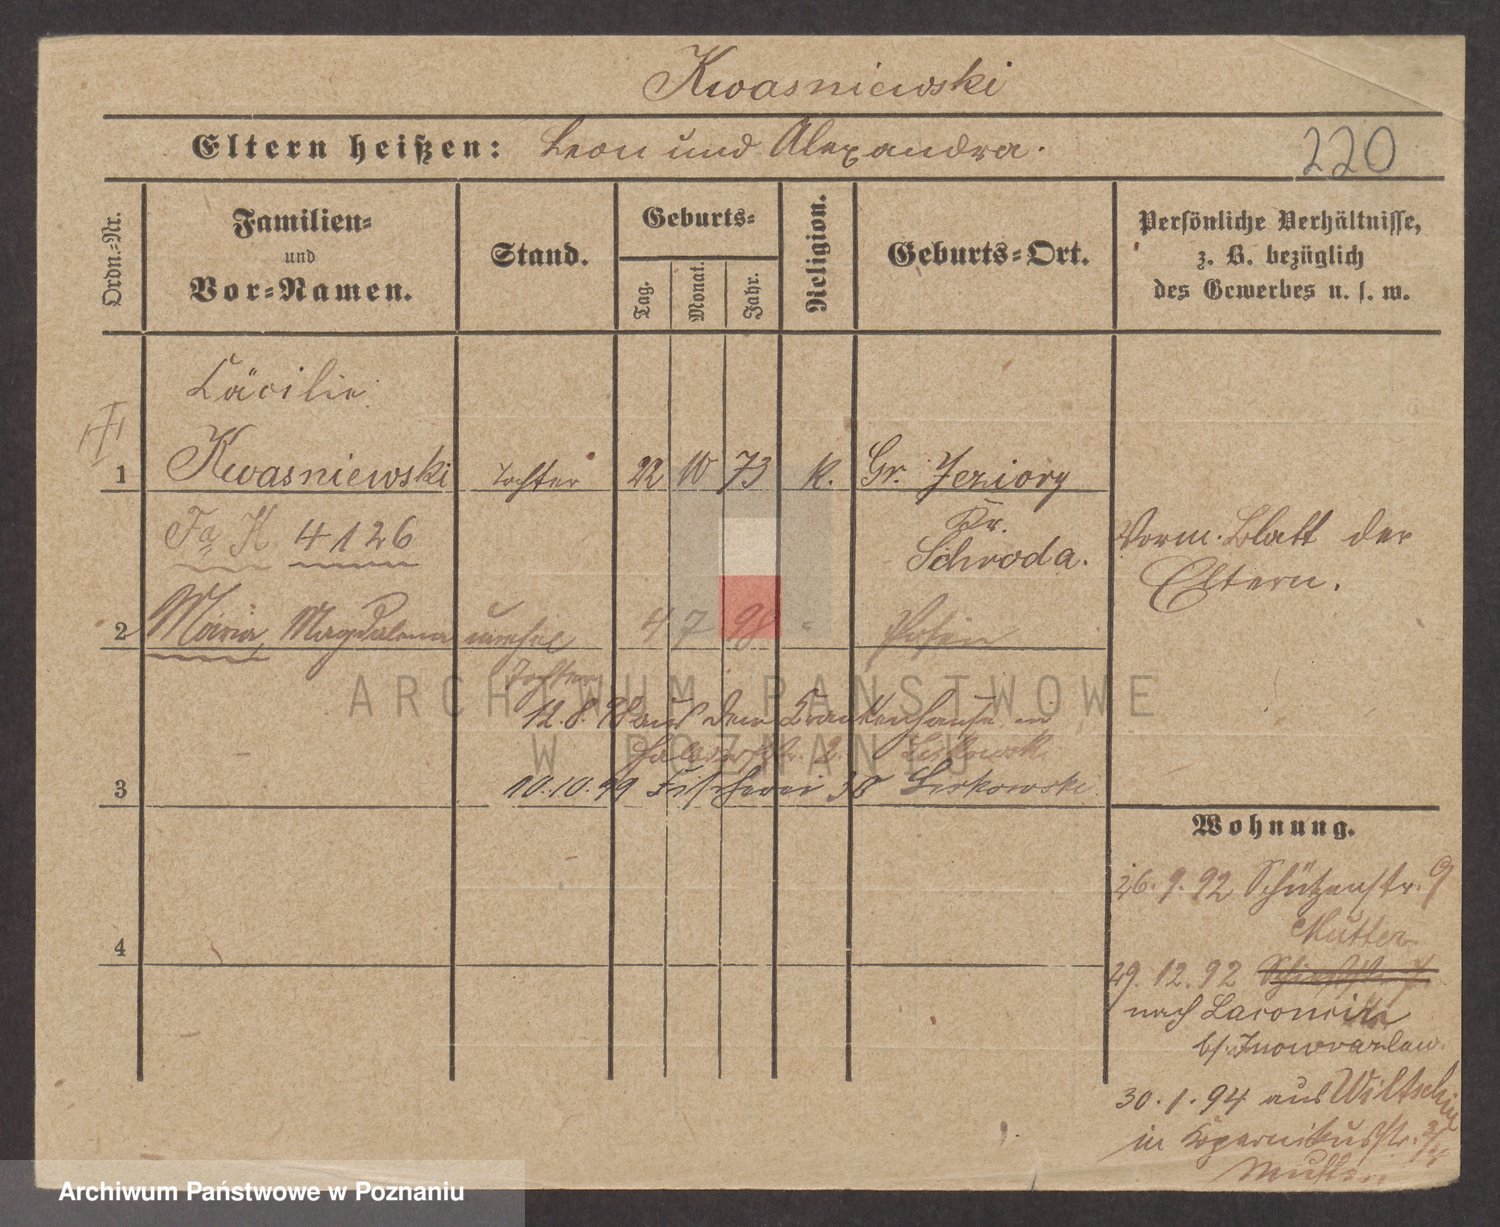 Kwasniewski
Eltern heißen: Leon und Alexandra.
220
Ordn.-Nr.
Familien-
und
Vor-Namen.
Stand.
Geburts-
Tag.
Monat.
Jahr.
Religion.
Geburts-Ort.
Persönliche Verhältnisse,
z. B. bezüglich
des Gewerbes u. s. w.
Cäcilie
1 Kwasniewski Tochter 22 10 73 k. Gr. Jeziory
Kr.
Schroda.
Fa K. 4126
Vorm. Blatt der
Eltern.
2 Maria, Magdalena unehel 4 7 98 " Posen
Tochter
12.8.98 aus dem Krankenhause in
10.10.99 Fischerei 38 Liskowski
3
Wohnung.
26.9.92 Schützenstr. 9
Mutter
4
29.12.92
nach
b/ Inowrazlaw.
30.1.94 aus Wiltschin
in Kopernikusstr.
Mutter
ARCHIWUM PAŃSTWOWE
W POZNANIU
Archiwum Państwowe w Poznaniu